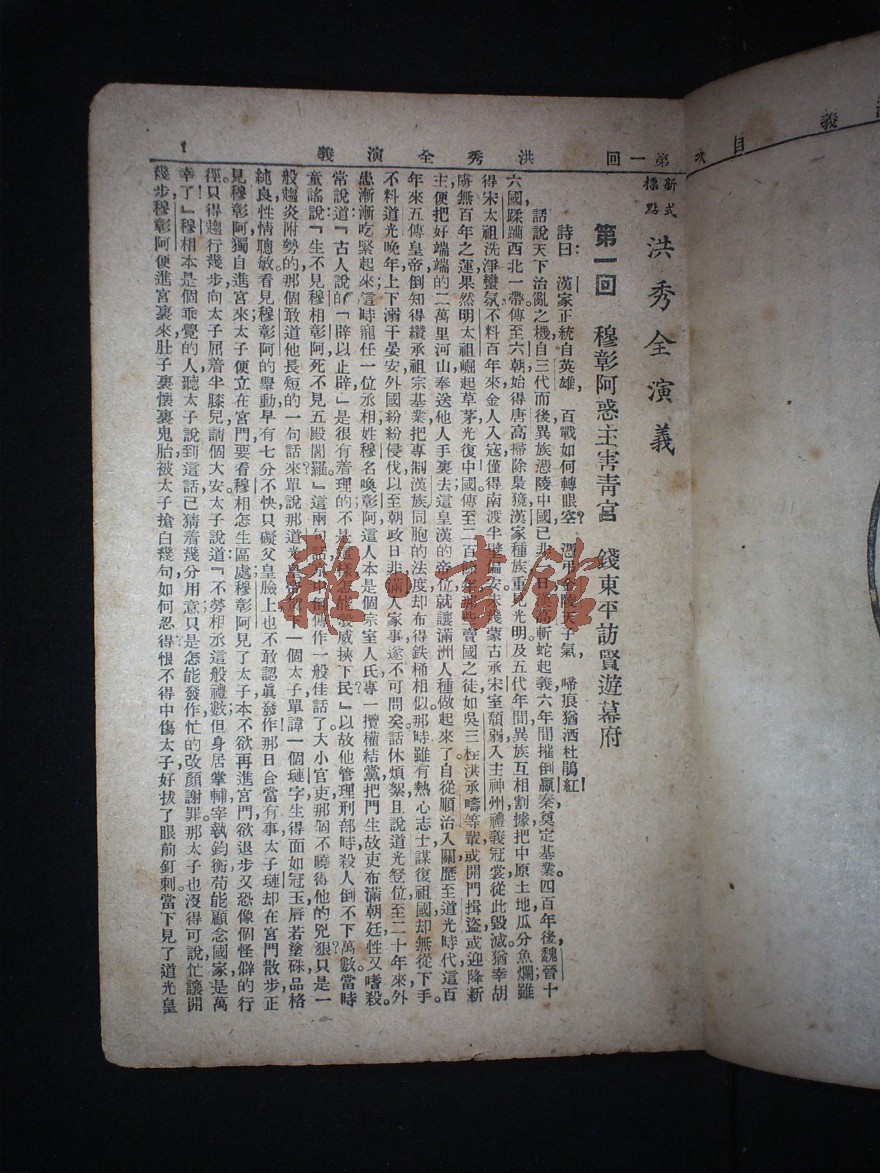 義 目次
第一回 洪秀全演義 1
新式標點 洪秀全演義
第一回 穆彰阿惑主害青宮 錢東平訪賢遊幕府
詩曰：漢家正統自英雄，百戰如何轉眼空？憑弔金陵天子氣，啼痕猶洒杜鵑紅！
話說天下治亂之機，自三代而後，異族憑陵中國，已非一日。漢高斬蛇起義，六年間摧倒嬴秦，奠定基業。四百年後，魏晉十
六國蹂躪西北一帶，傳至六朝，始得唐高掃除梟獍，漢家種族，重見光明。及五代年間，異族互相割據，把中原土地，瓜分魚爛，雖
得宋太祖洗淨蠻氛，不料百年來，金人入寇，僅得南渡半壁偏安，未幾蒙古承宋室頹弱，入主神州，禮義冠裳，從此毀滅。猶幸胡
虜無百年之運，果然明太祖崛起草茅，光復中國。傳至二百餘年，那些賣國之徒，如吳三桂洪承疇等輩，或開門揖盜，或迎降新
主，便把好端端的二萬里河山，奉送他人手裏去，這皇漢的帝位，就讓滿洲人種做起來了。自從順治入關，歷至道光時代，這百
年來五傳皇帝，倒知得纘承祖宗基業，把專制漢族同胞的法度，却布得鉄桶相似。那時雖有熱心志士，謀復祖國，却無從下手。
不料道光晚年，上下溺于晏安，外國紛紛侵伐，以至朝政日非，滿人家事，遂不可問矣。話休煩絮，且說道光登位，至二十年來，外
患漸漸吃緊起來；這時寵任一位丞相，姓穆名喚彰阿，這人本是個宗室人氏，專一攬權結黨，把門生故吏，布滿朝廷，性又嗜殺。
常說道：『古人說的「辟以止辟」是很有着理的，不是這樣，怎能發威挾下民？』以故他管理刑部時，殺人倒不下萬數。當時
童謠說：『生不見穆相彰阿，死不見五殿閻羅。』這兩句話，京中倒傳作一般佳話了。大小官吏，那個不曉得他的兇狠？只是一
般趨炎附勢的，那個敢道他長短的一句話來？單說那道光皇帝，有一個太子單諱一個璉字，生得面如冠玉，唇若塗硃，品格
純良，性情聰敏，看見穆彰阿的舉動，早有七分不快，只礙父皇臉上，也不敢認眞發作！那日合當有事，太子璉却在宮門散步，正
見穆彰阿獨自進宮來，太子便立在宮門，要看穆相怎生區處。穆彰阿見了太子，本不欲再進宮門，欲退步，又恐像個怪僻的行
徑，只得趨行幾步，向太子屈着半膝兒，請個大安。太子說道：『不勞相丞這般禮數，但身居掌輔宰，執鈞衡，苟能顧念國家，是萬
幸了！』穆相本是個乖覺的人，聽太子說到這話，已猜着幾分用意，只是怎能發作，忙的改顏謝罪。那太子也沒得可說，忙讓開
幾步，穆彰阿便進宮裏來，肚子裏懷裏鬼胎，被太子搶白幾句，如何忍得？恨不得中傷太子，好拔了眼前釘刺。當下見了道光皇
雅·書館